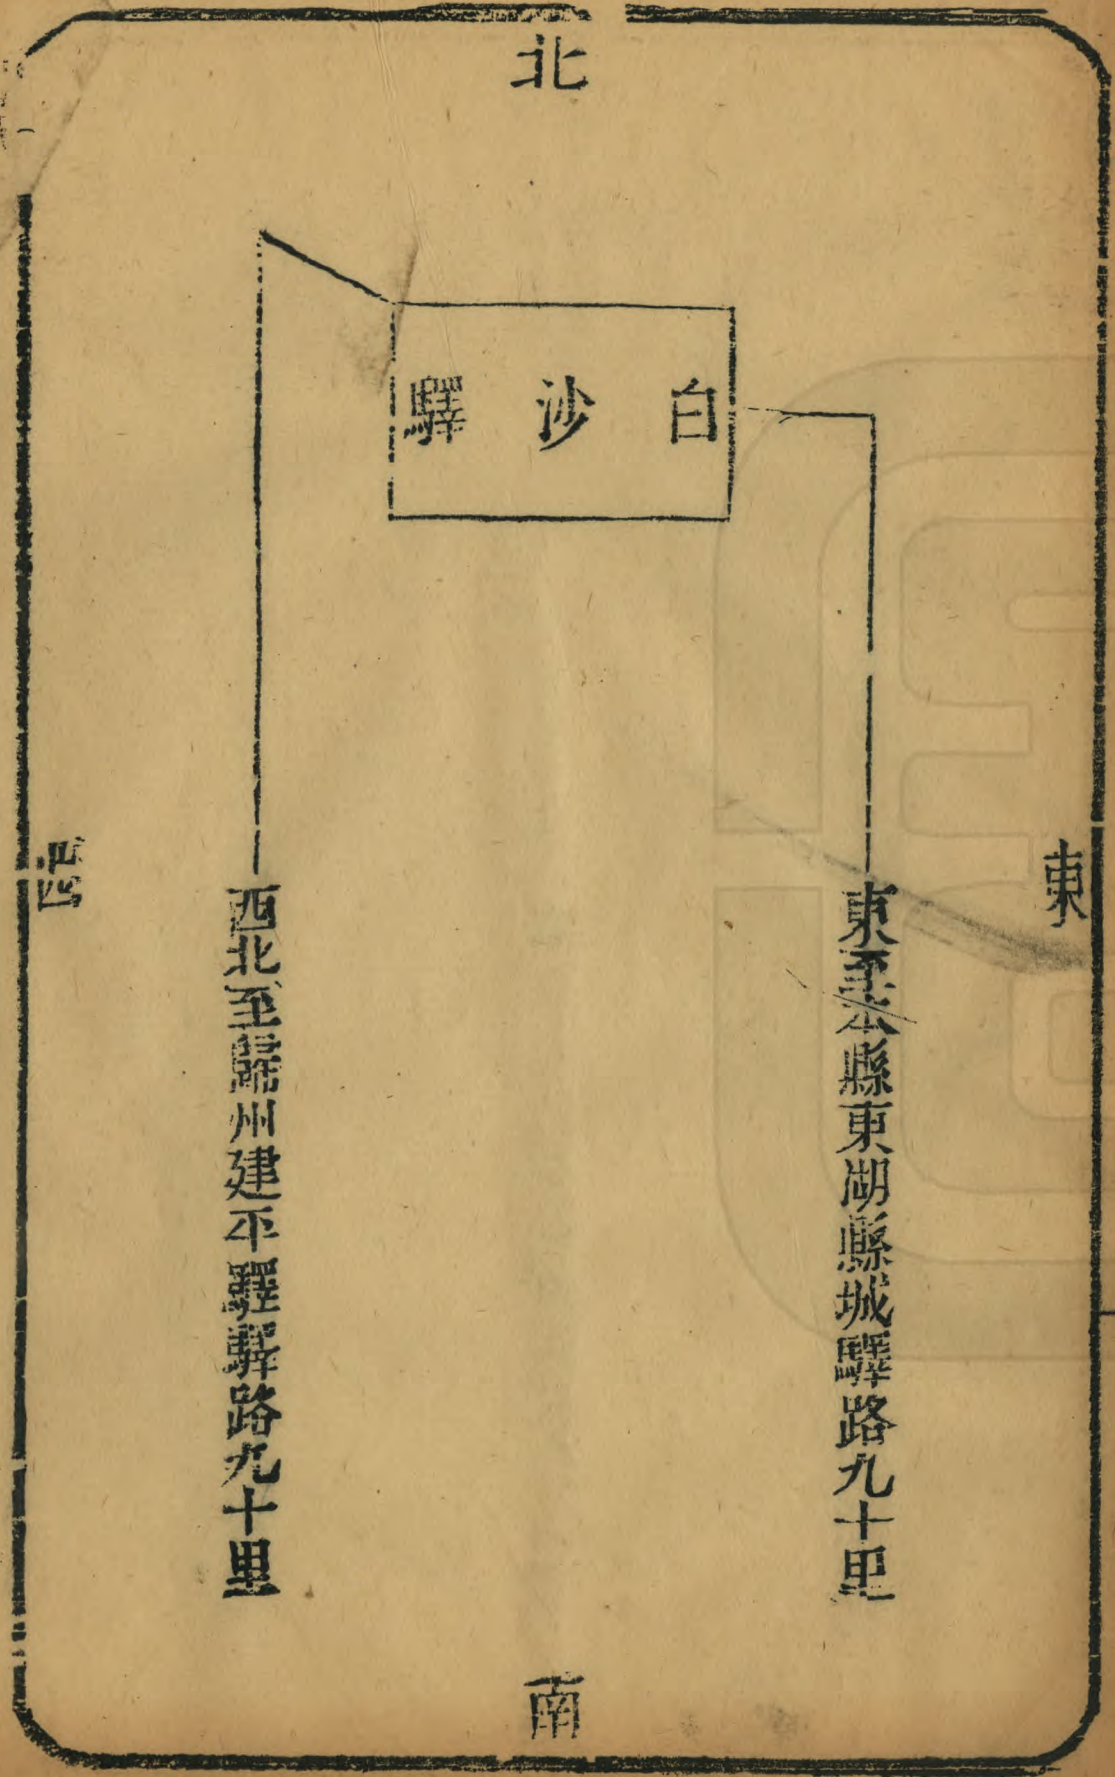 北
白沙驛
東
東至本縣東湖縣城驛路九十里
西北至歸州建平驛驛路九十里
西
南